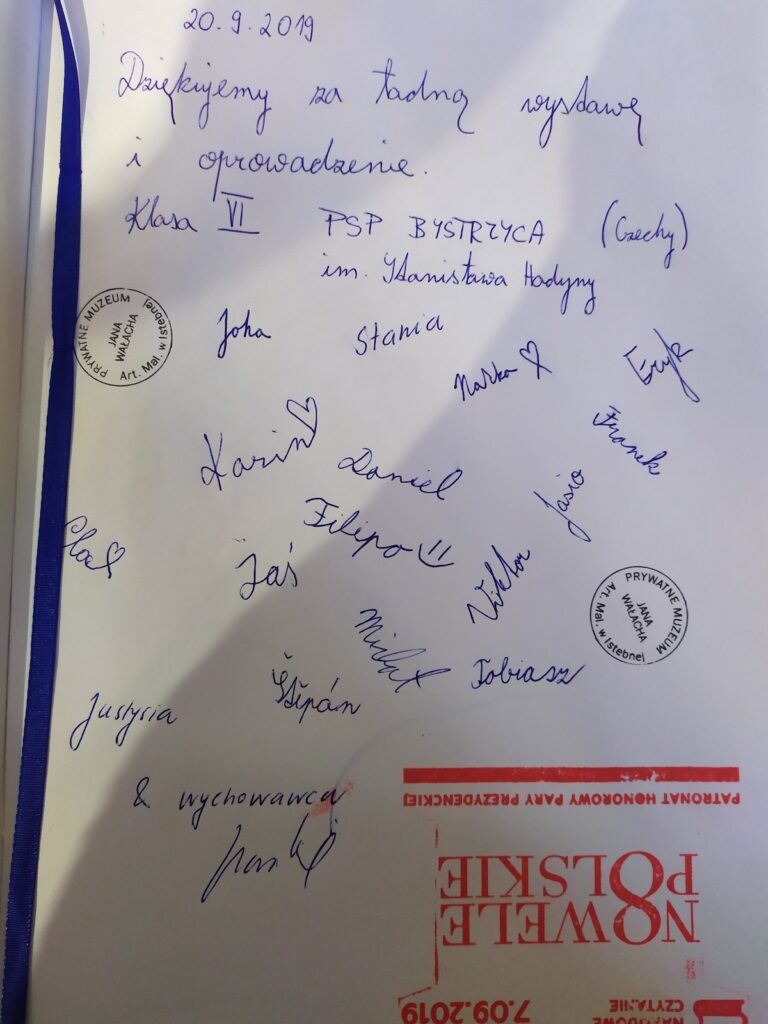 20.9.2019
Dziękujemy za ładną wystawę
i oprowadzenie.
Klasa VI PSP BYSTRZYCA (Czechy)
im. Stanisława Hadyny
PRYWATNE MUZEUM
JANA
WAŁACHA
Art. Mal. w Istebnej
Joha
Stania
Eryk
Karin
Daniel
Franek
Filipo
Jasio
Jáś
Viktor
PRYWATNE MUZEUM
JANA
WAŁACHA
Art. Mal. w Istebnej
Michał
Tobiasz
Štěpán
Justycia
& wychowawca
PATRONAT HONOROWY PARY PREZYDENCKIEJ
8
NOWELE
POLSKIE
NARODOWE
CZYTANIE
7.09.2019